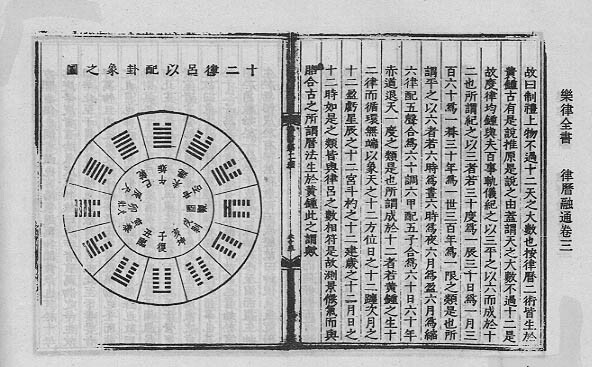 樂律全書　律曆融通卷三
故曰制禮上物不過十二天之大數也按律曆二術皆生於
黃鍾古有是說推原是說之由蓋謂天之大數不過十二是
故度律均鍾與夫百事軌儀紀之以三平之以六而成於十
二也所謂紀之以三者若三十度爲一辰三十日爲一月三
百六十爲一朞三十年爲一世三百年爲一限之類是也所
謂平之以六者若六時爲晝六時爲夜六月爲盈六月爲縮
六律配五聲合爲六十調六甲配五子合爲六十日六十年
赤道退天一度之類是也所謂成於十二者若黃鍾之生十
二律而循環無端以象天之十二方位日之十二躔次月之
十二盈虧星辰之十二宮斗杓之十二建歲之十二月日之
十二時如是之類皆與律呂之數相符是故測景候氣而與
脗合古之所謂曆法生於黃鍾此之謂歟
十二律呂以配卦象之圖
子復
丑臨